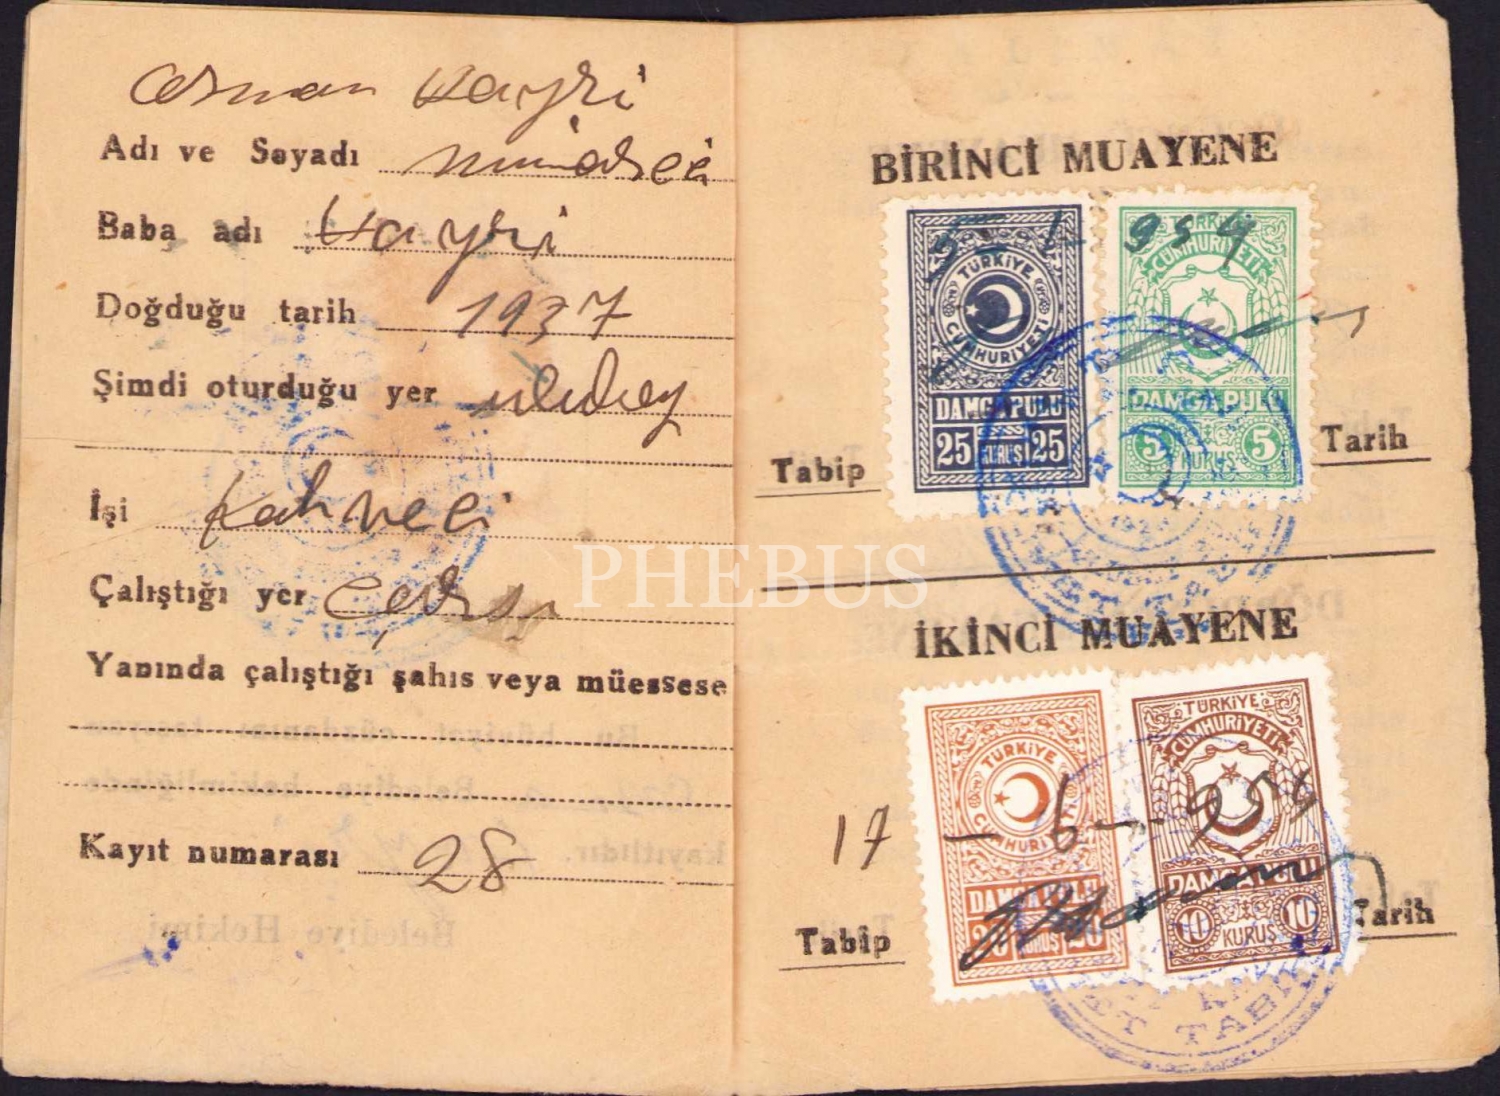 Osman Hayri
Adı ve Soyadı
Baba adı Hayri
Doğduğu tarih 1937
Şimdi oturduğu yer
İşi Kahveci
Çalıştığı yer Çarşı
Yanında çalıştığı şahıs veya müessese
Kayıt numarası 28
BİRİNCİ MUAYENE
5 - 1 - 954
TÜRKİYE CUMHURİYETİ
DAMGA PULU
25 KURUŞ 25
TÜRKİYE CUMHURİYETİ
DAMGA PULU
5 KURUŞ 5
Tabip Tarih
PHEBUS
İKİNCİ MUAYENE
17 - 6 - 954
TÜRKİYE CUMHURİYETİ
DAMGA PULU
20 KURUŞ 20
TÜRKİYE CUMHURİYETİ
DAMGA PULU
10 KURUŞ 10
Tabip Tarih